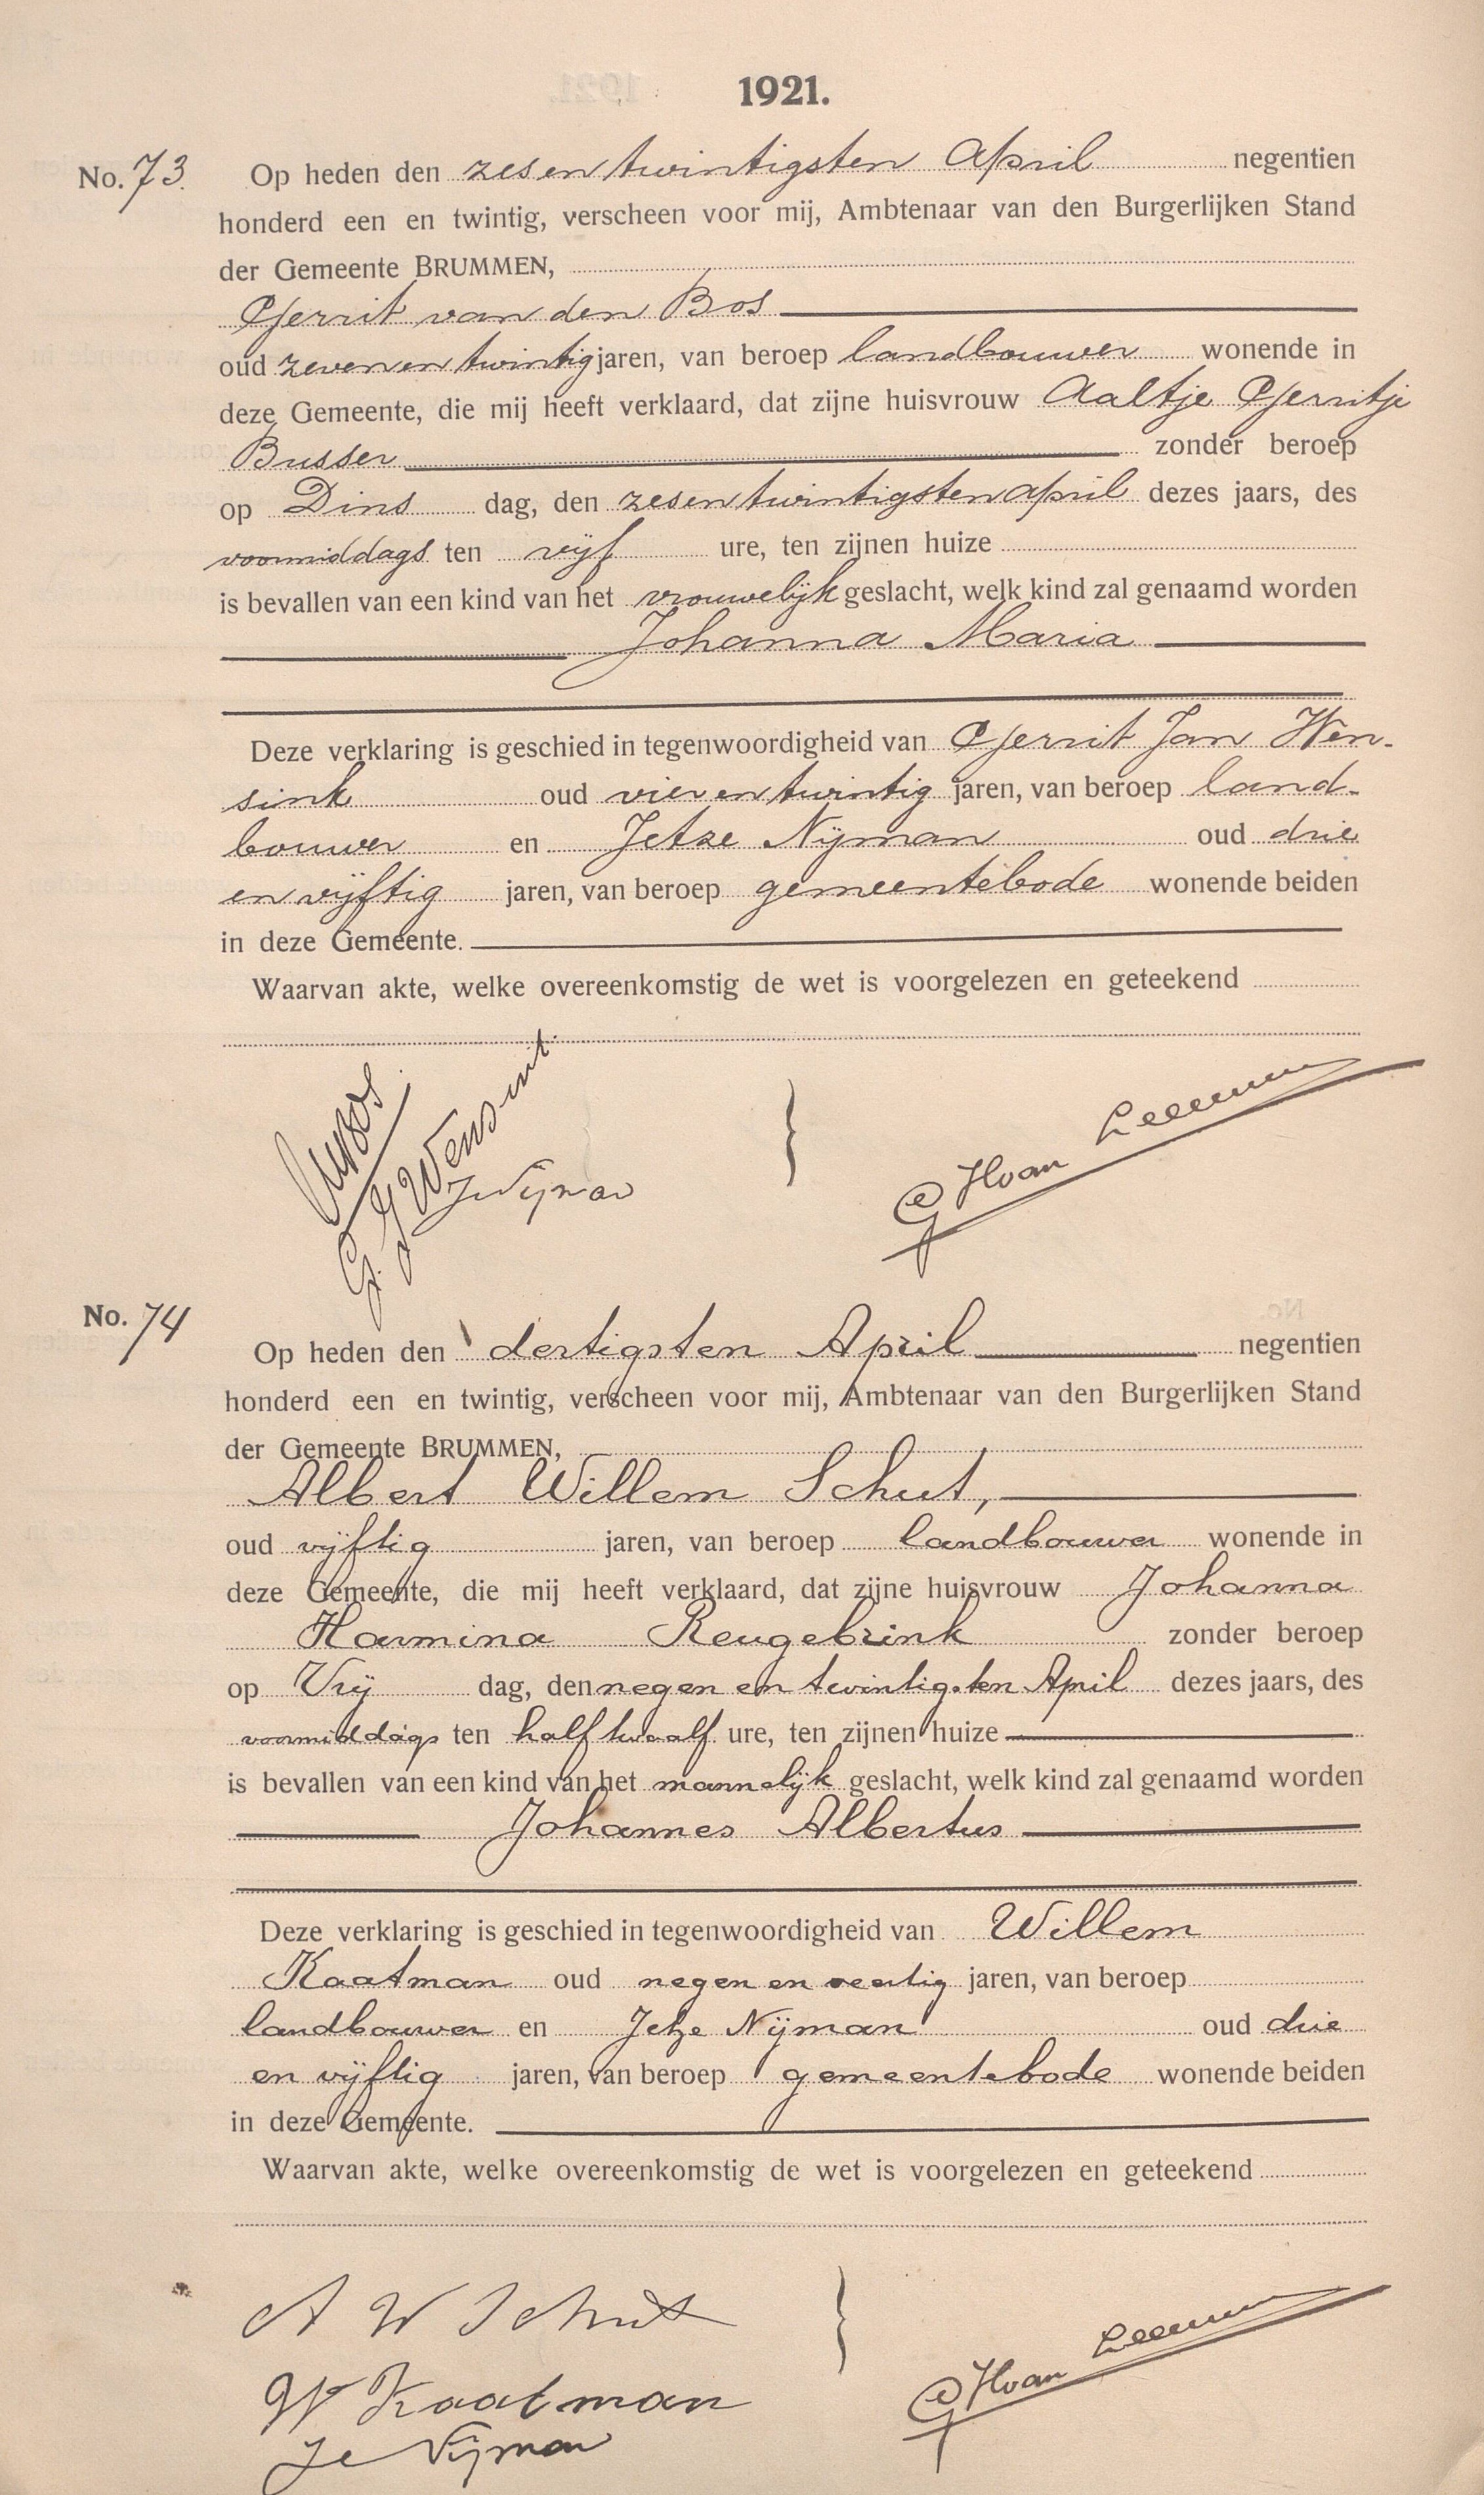 1921.
No. 73. Op heden den zes en twintigsten April negentien
honderd een en twintig, verscheen voor mij, Ambtenaar van den Burgerlijken Stand
der Gemeente BRUMMEN,
Gerrit van den Bos
oud zeven en twintig jaren, van beroep landbouwer wonende in
deze Gemeente, die mij heeft verklaard, dat zijne huisvrouw Aaltje Gerritje
Busser zonder beroep
op Dins dag, den zes en twintigsten April dezes jaars, des
voormiddags ten vijf ure, ten zijnen huize
is bevallen van een kind van het vrouwelijk geslacht, welk kind zal genaamd worden
Johanna Maria
Deze verklaring is geschied in tegenwoordigheid van Gerrit Jan Wen-
sink oud vier en twintig jaren, van beroep land-
bouwer en Jetze Nijman oud drie
en vijftig jaren, van beroep gemeentebode wonende beiden
in deze Gemeente.
Waarvan akte, welke overeenkomstig de wet is voorgelezen en geteekend
G J Wensink
J Nijman
}
G H van
No. 74 Op heden den dertigsten April negentien
honderd een en twintig, verscheen voor mij, Ambtenaar van den Burgerlijken Stand
der Gemeente BRUMMEN,
Albert Willem Schut,
oud vijftig jaren, van beroep landbouwer wonende in
deze Gemeente, die mij heeft verklaard, dat zijne huisvrouw Johanna
Harmina Reugebrink zonder beroep
op Vrij dag, den negen en twintigsten April dezes jaars, des
voormiddags ten half twaalf ure, ten zijnen huize
is bevallen van een kind van het mannelijk geslacht, welk kind zal genaamd worden
Johannes Albertus
Deze verklaring is geschied in tegenwoordigheid van Willem
Kaatman oud negen en veertig jaren, van beroep
landbouwer en Jetze Nijman oud drie
en vijftig jaren, van beroep gemeentebode wonende beiden
in deze Gemeente.
Waarvan akte, welke overeenkomstig de wet is voorgelezen en geteekend
A W Schut
W Kaatman
Je Nijman
}
G H van